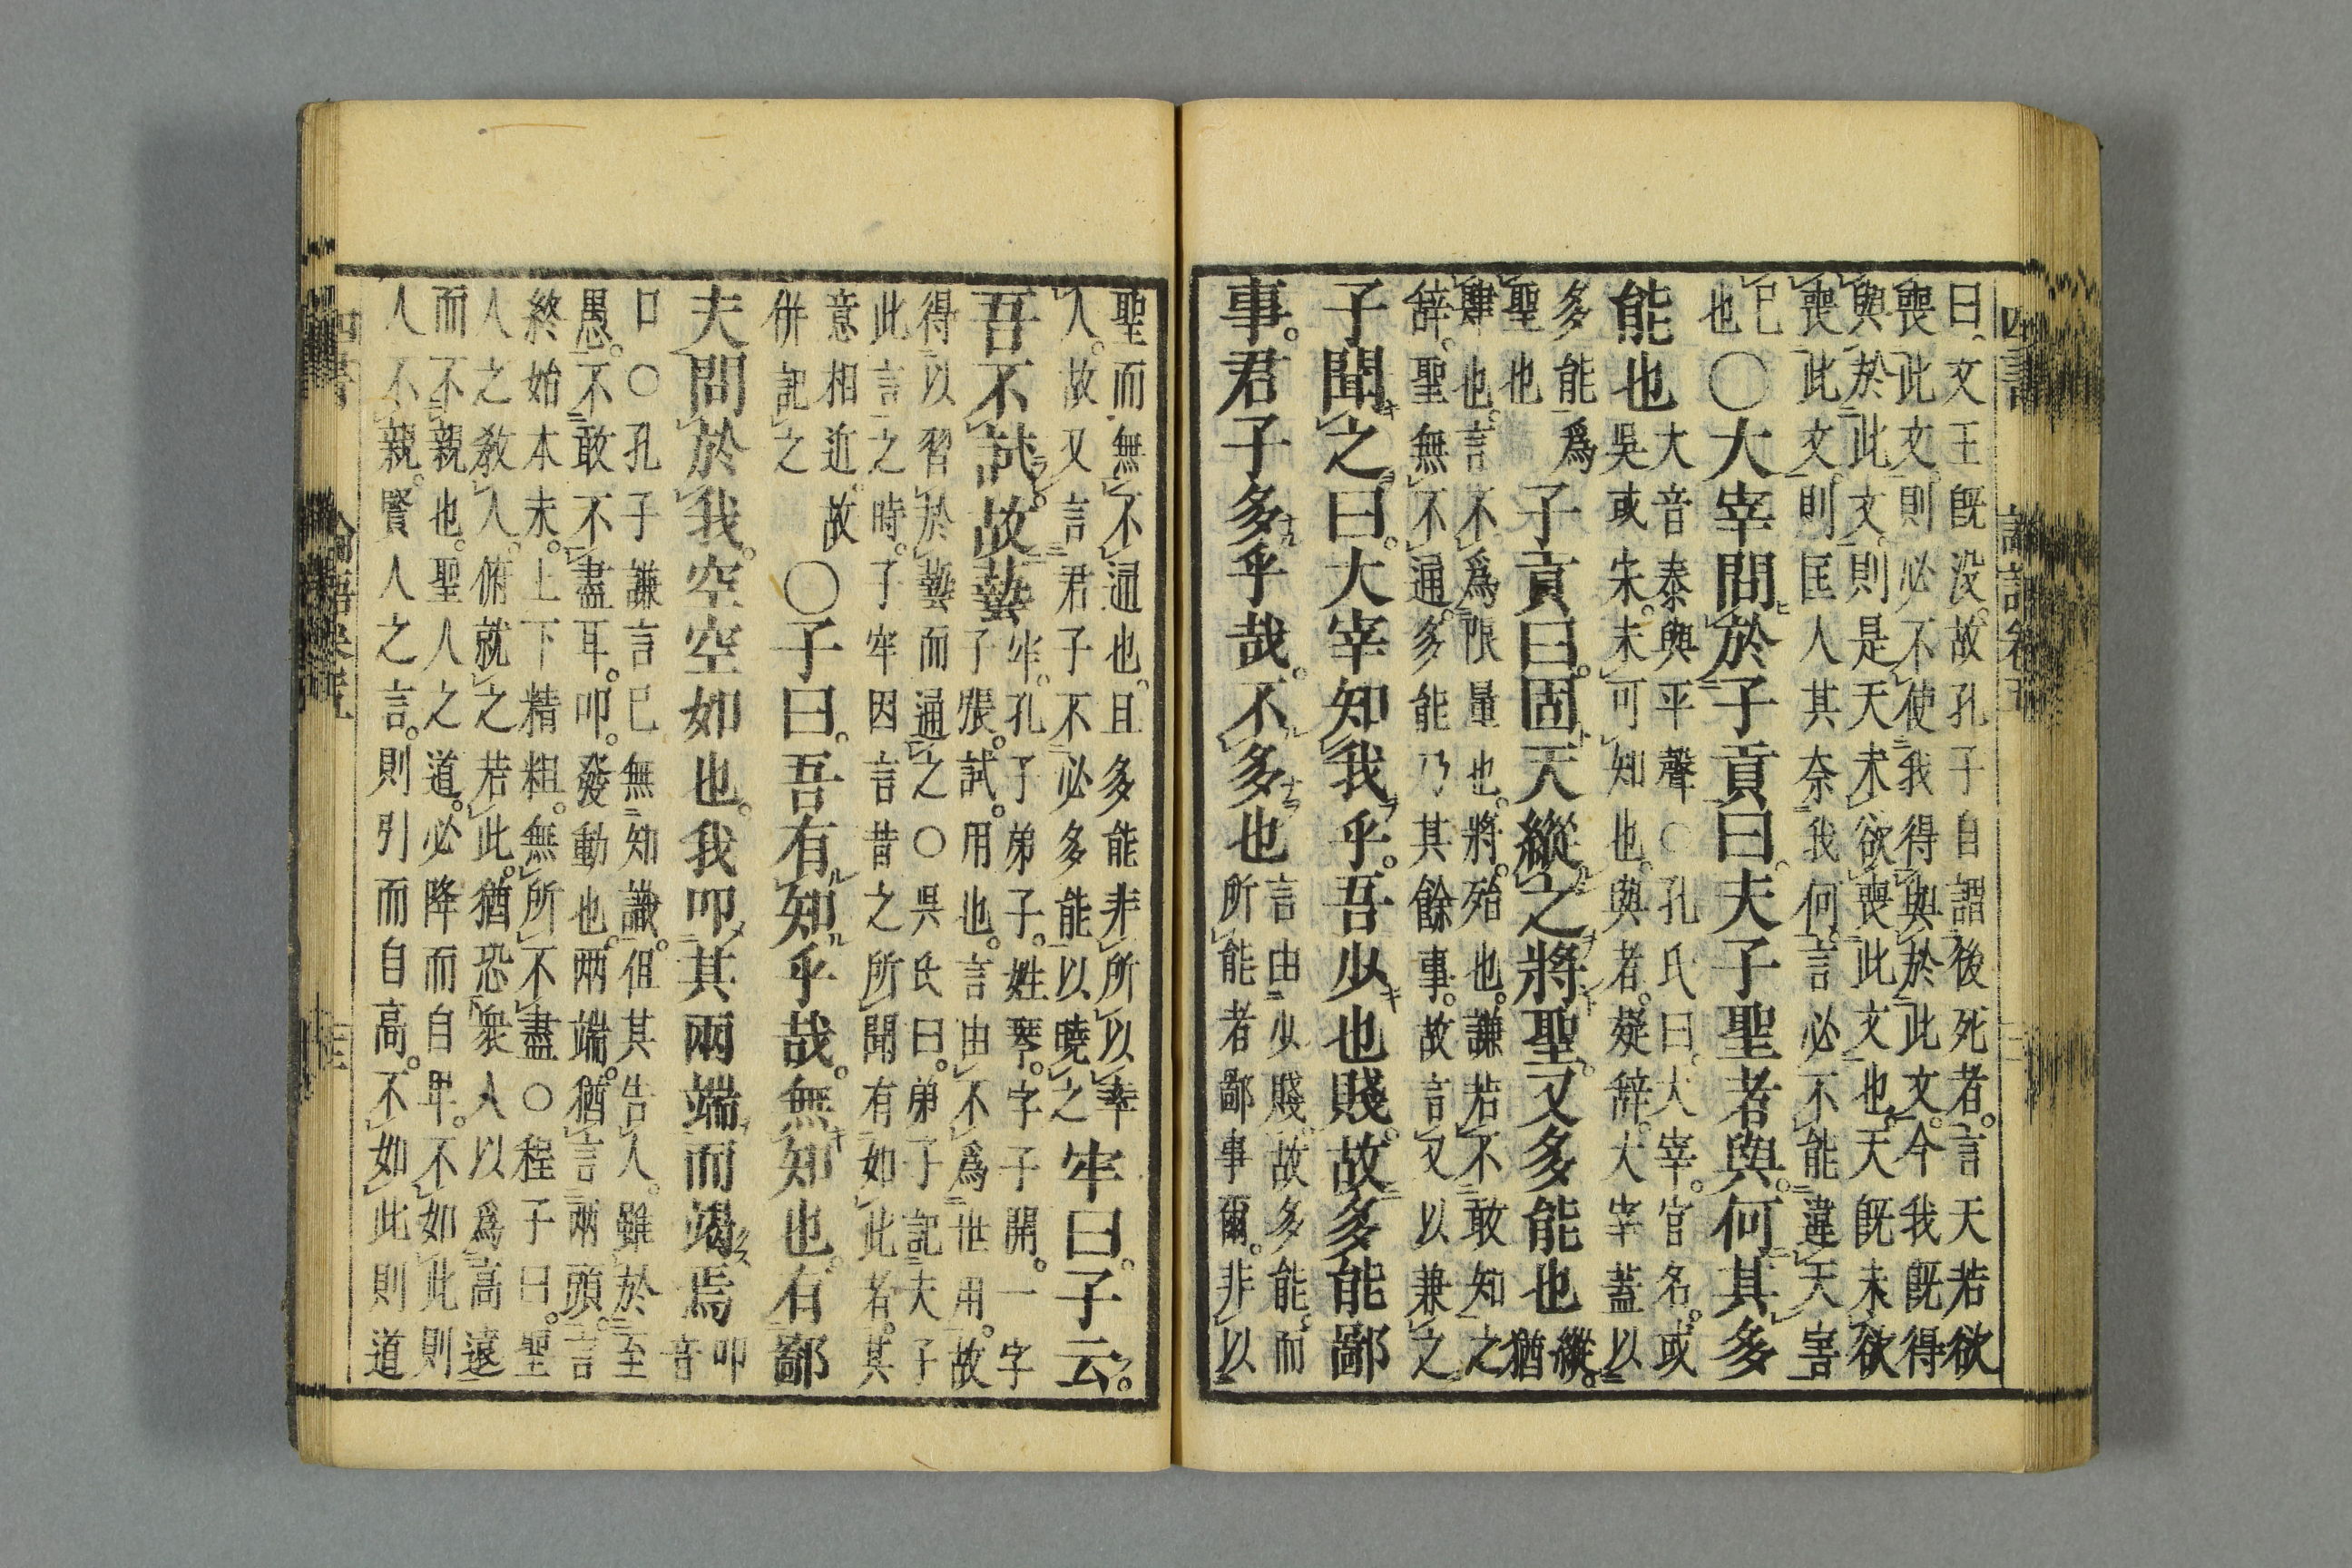 四書 論語卷五
曰、文王既没。故孔子自謂後死者。言天若欲
喪此文。則必不使我得與於此文。今我既得
與於此文。則是天未欲喪此文也。天既未欲
喪此文。則匡人其奈我何。言必不能違天害
己
也
○大宰問於子貢曰。夫子聖者與。何其多
能也
大音泰與平聲○孔氏曰。大宰。官名。或
吳或宋。未可知也。與者。疑辭。大宰蓋以
多能爲
聖也
子貢曰。固天縱之將聖。又多能也
縱。
猶
肆也。言不爲限量也。將。殆也。謙若不敢知之
辭。聖無不通。多能乃其餘事。故言又以兼之
子聞之。曰。大宰知我乎。吾少也賤。故多能鄙
事。君子多乎哉。不多也
言由少賤。故多能。而
所能者鄙事爾。非以
聖而無不通也。且多能非所以率
人。故又言君子不必多能以曉之
牢曰。子云。
吾不試。故藝
牢。孔子弟子。姓琴。字子開。一字
子張。試。用也。言由不爲世用。故
得以習於藝而通之○吳氏曰。弟子記夫子
此言之時。子牢因言昔之所聞有如此者。其
意相近。故
併記之
○子曰。吾有知乎哉。無知也。有鄙
夫問於我。空空如也。我叩其兩端而竭焉
叩
音
口○孔子謙言已無知識。但其告人。雖於至
愚。不敢不盡耳。叩。發動也。兩端。猶言兩頭。言
終始本末。上下精粗。無所不盡○程子曰。聖
人之敎人。俯就之若此。猶恐衆人以爲高遠
而不親也。聖人之道。必降而自卑。不如此則
人不親。賢人之言。則引而自高。不如此則道